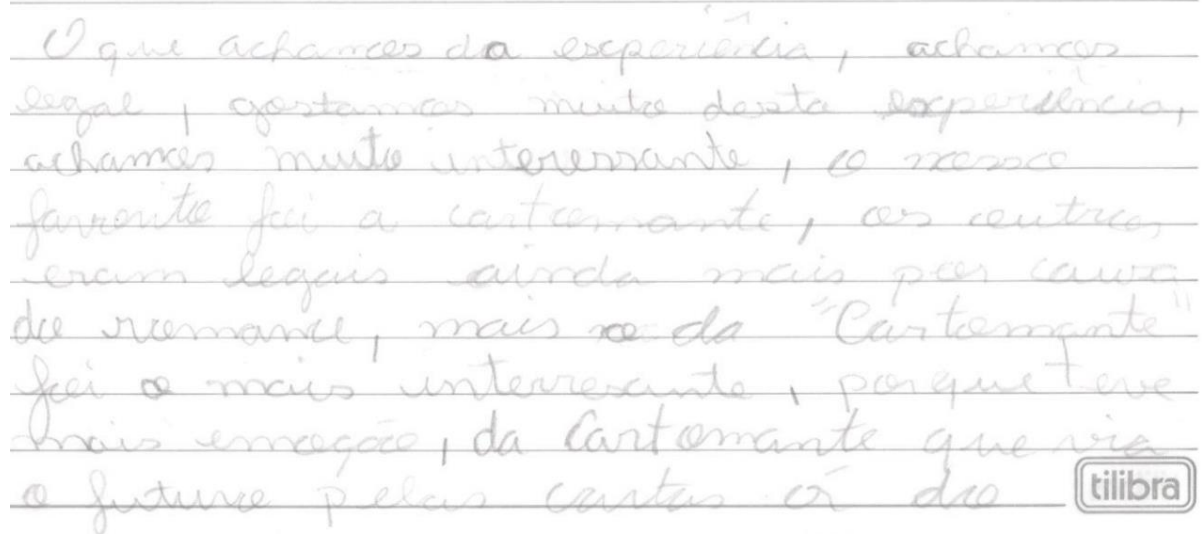 O que achamos da experiência, achamos
legal, gostamos muito desta experiência,
achamos muito interessante, o nosso
favorito foi a cartomante, os outros
eram legais ainda mais por causa
do romance, mais o da "Cartomante"
foi o mais interresante, porque teve
mais emoção, da Cartomante que via
o futuro pelas cartas o do
tilibra